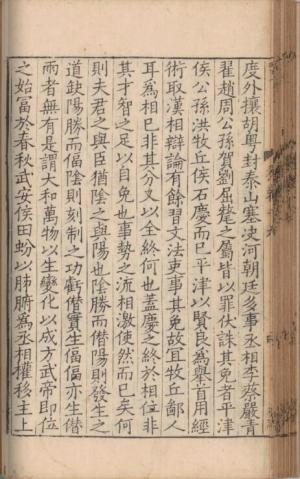 度外攘胡粤封泰山塞决河朝廷多事丞相李蔡嚴青
翟趙周公孫賀劉屈氂之屬皆以罪伏誅其免者平津
侯公孫洪牧丘侯石慶而已平津以賢良爲舉首用經
術取漢相辯論有餘習文法吏事其免故宜牧丘鄙人
耳爲相已非其分又以全終何也蓋慶之終於相位非
其才智之足以自免也事勢之流相激使然而已矣何
則夫君之與臣猶陰之與陽也陰勝而僭陽則發生之
道缺陽勝而偪陰則刻制之功虧僭實生偪偪亦生僭
兩者無有是謂大和萬物以生變化以成方武帝即位
之始富於春秋武安侯田蚡以肺腑爲丞相權移主上